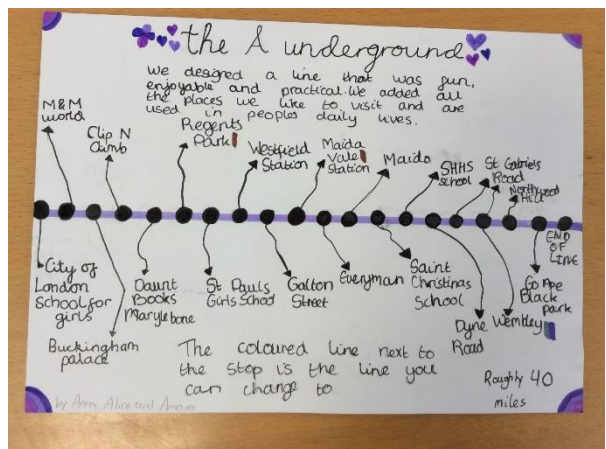 the A underground
We designed a line that was fun,
enjoyable and practical. We added all
the places we like to visit and are
used in peoples daily lives.
M&M
world
Clip N
Climb
Regents
Park
Westfield
Station
Maida
Vale
station
Maido
SHHS
school
St Gabriels
Road
Northwood
Hill
END
OF
LINE
City of
London
School for
girls
Buckingham
palace
Daunt
Books
Marylebone
St Pauls
Girls School
Galton
Street
Everyman
Saint
Christinas
School
Dyne
Road
Wembley
Go Ape
Black
park
The coloured line next to
the stop is the line you
can change to
Roughly 40
miles
by Anna, Alice and